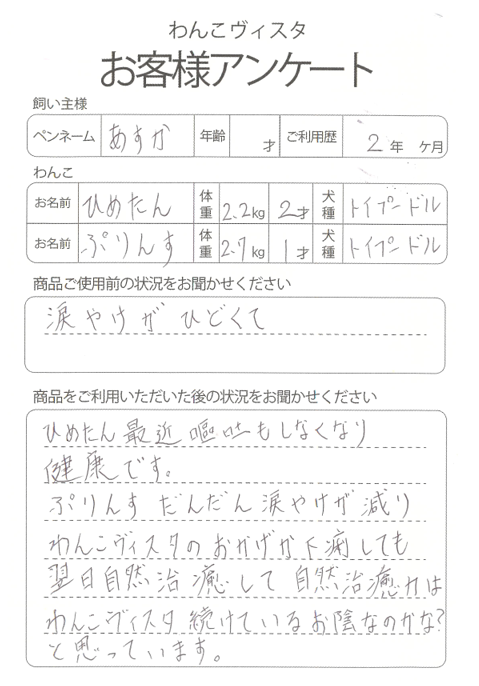 わんこヴィスタ
お客様アンケート
飼い主様
ペンネーム あすか 年齢 才 ご利用歴 2年 ヶ月
わんこ
お名前 ひめたん 体重 2.2kg 2才 犬種 トイプードル
お名前 ぷりんす 体重 2.7kg 1才 犬種 トイプードル
商品ご使用前の状況をお聞かせください
涙やけがひどくて
商品をご利用いただいた後の状況をお聞かせください
ひめたん最近嘔吐もしなくなり
健康です。
ぷりんす だんだん涙やけが減り
わんこヴィスタのおかげか下痢しても
翌日自然治癒して 自然治癒力は
わんこヴィスタ続けているお陰なのかな?
と思っています。